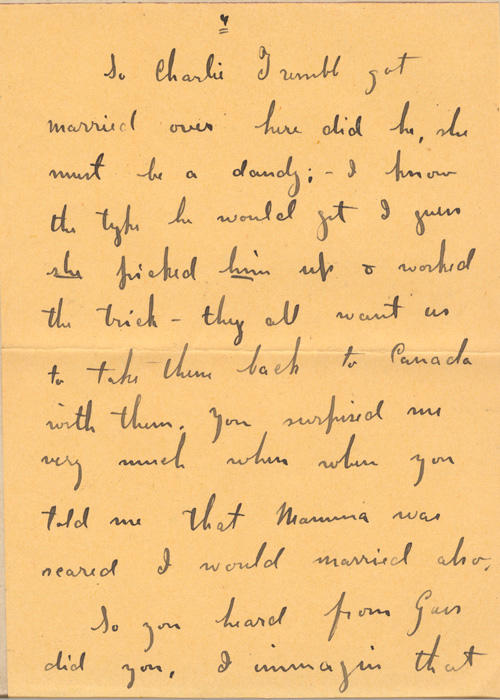 4
So Charlie Trumbl got
married over here did he, she
must be a dandy; - I know
the type he would get I guess
she picked him up & worked
the trick - they all want us
to take them back to Canada
with them. You surprised me
very much when when you
told me that Mamma was
scared I would married also.
So you heard from
did you, I immagin that